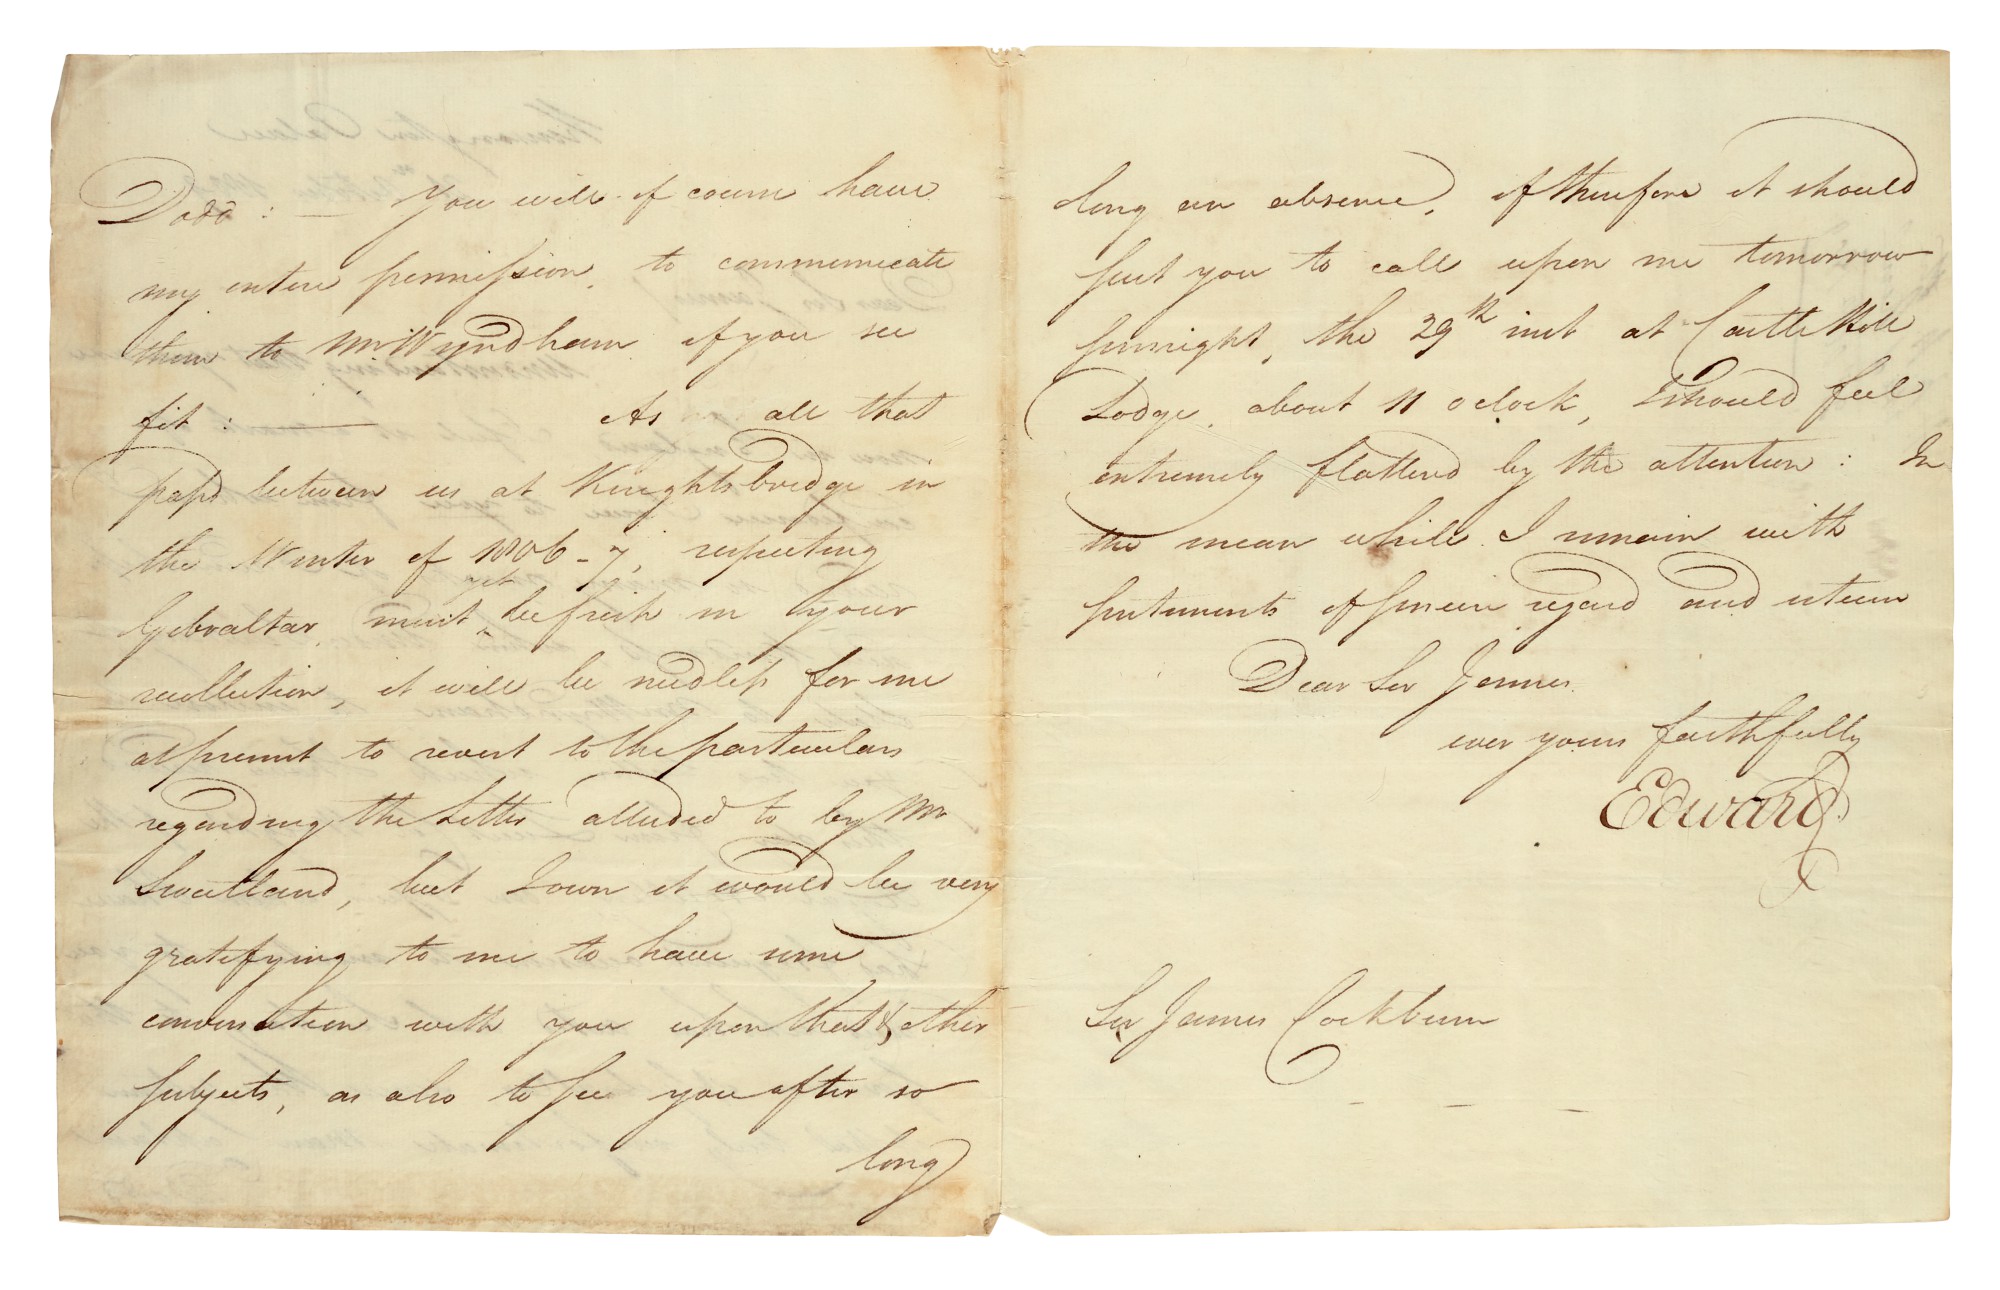 Dodd : — You will of course have
my entire permission, to communicate
them to Mr Wyndham if you see
fit : — As all that
pass'd between us at Knightsbridge in
the Winter of 1806-7, respecting
Gibraltar, must yet be fresh in your
recollection, it will be needless for me
at present to revert to the particulars
regarding the Letter alluded to by Mr
Sweetland, but I own it would be very
gratifying to me to have some
conversation with you upon that & other
subjects, as also to see you after so
long
long an absence, if therefore it should
suit you to call upon me tomorrow
sennight, the 29th inst at Castle Hill
Lodge, about 11 oclock, I should feel
extremely flattered by the attention : In
the mean while I remain with
sentiments of sincere regard and esteem
Dear Sir James.
ever yours faithfully
Edward
Sir James Cockburn